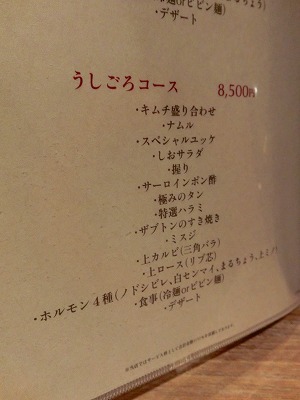 (冷麺orビビン麺)
・デザート
うしごろコース 8,500円
・キムチ盛り合わせ
・ナムル
・スペシャルユッケ
・しおサラダ
・握り
・サーロインポン酢
・極みのタン
・特選ハラミ
・ザブトンのすき焼き
・ミスジ
・上カルビ(三角バラ)
・上ロース(リブ芯)
・ホルモン4種(ノドシビレ、白センマイ、まるちょう、上ミノ)
・食事(冷麺orビビン麺)
・デザート